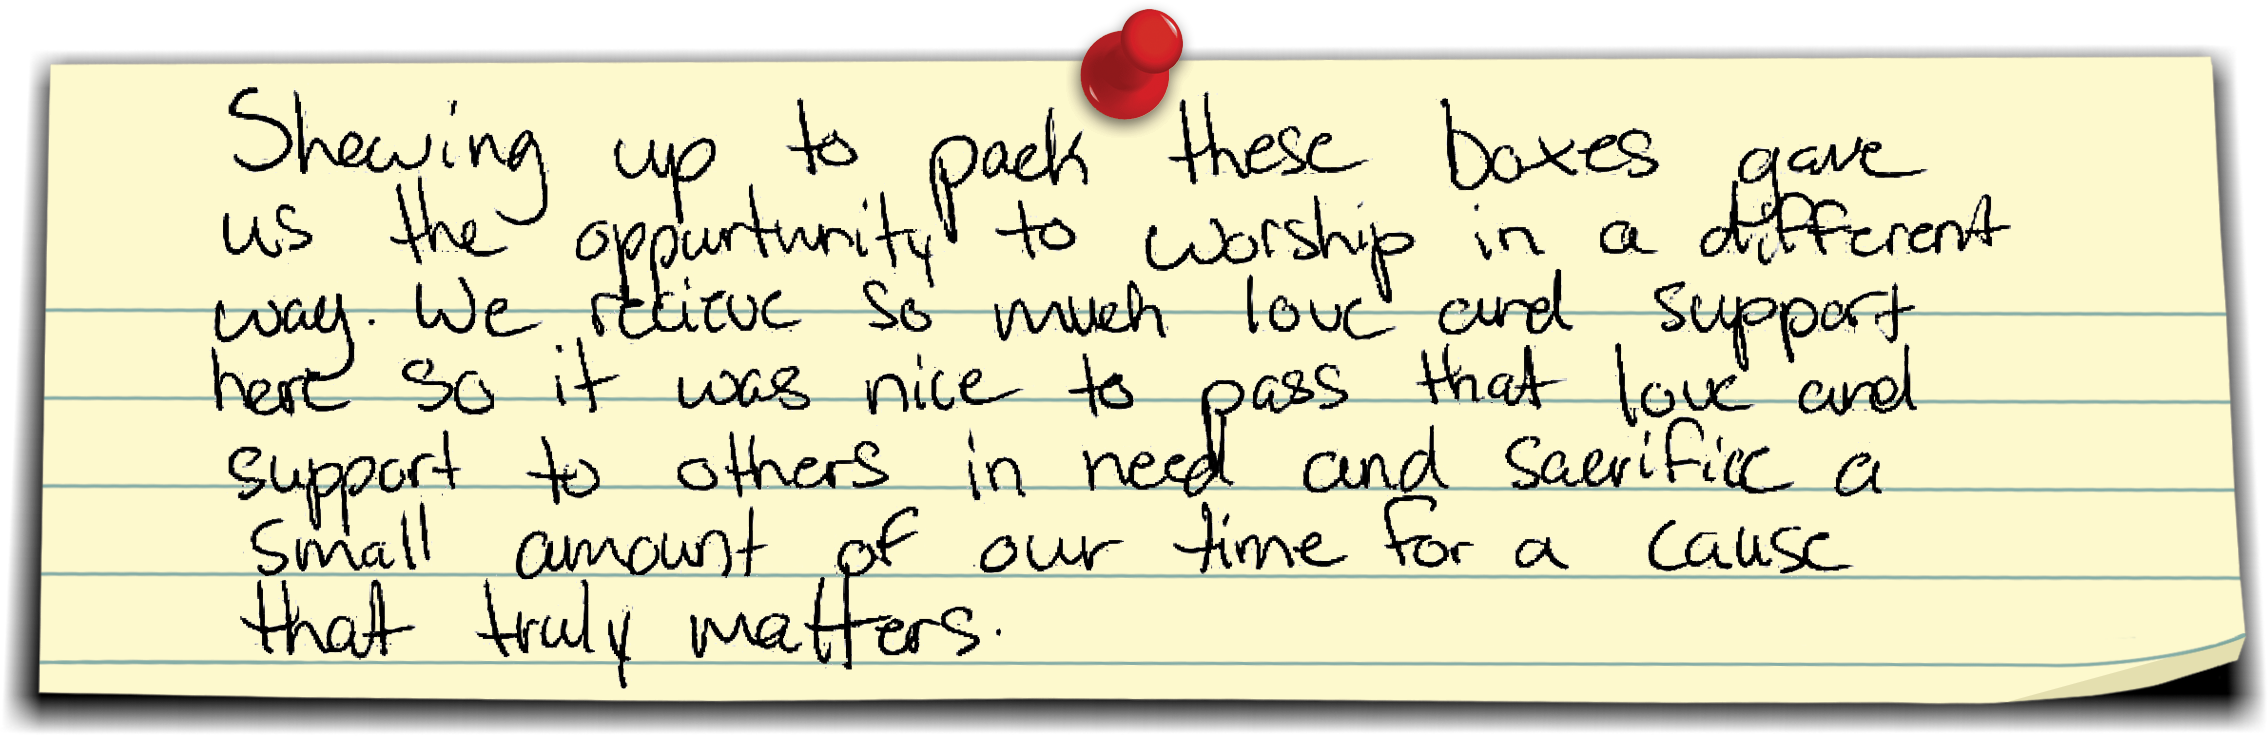 Showing up to pack these boxes gave
us the oppurtunity to worship in a different
way. We recieve so much love and support
here so it was nice to pass that love and
support to others in need and sacrifice a
small amount of our time for a cause
that truly matters.